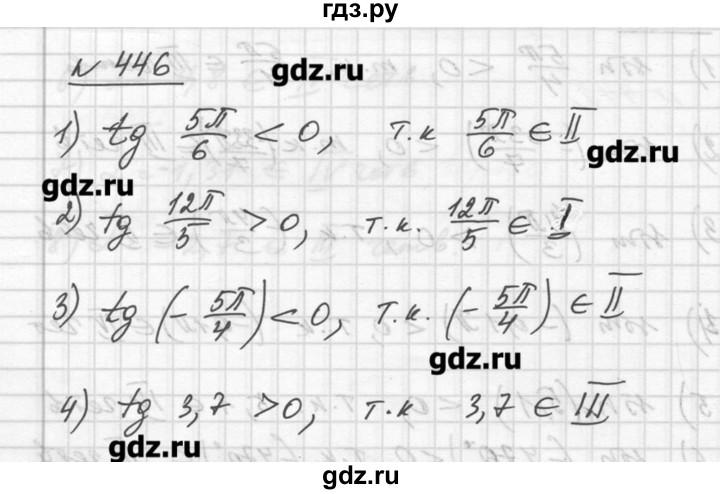 гдз.ру
№ 446
gdz.ru
1) tg 5π/6 < 0, т.к 5π/6 ∈ II
gdz.ru
gdz.ru
2) tg 12π/5 > 0, т.к. 12π/5 ∈ I
3) tg (- 5π/4) < 0, т.к. (- 5π/4) ∈ II
gdz.ru
4) tg 3,7 > 0, т.к 3,7 ∈ III
gdz.ru
gdz.ru